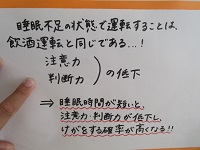 睡眠不足の状態で運転することは、
飲酒運転と同じである...!
注意力
判断力 ) の低下
⇒ 睡眠時間が短いと、
注意力・判断力が低下し、
けがをする確率が高くなる!!